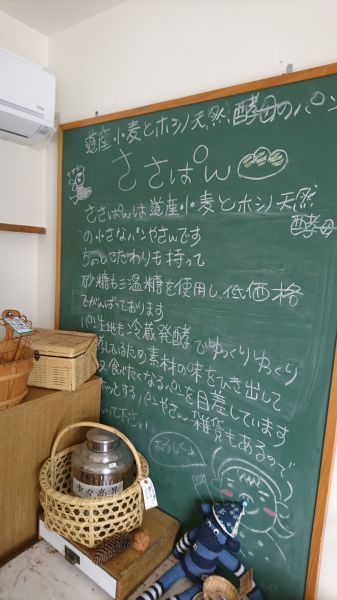 道産小麦とホシノ天然酵母のパン
ささぱん
ささぱんは道産小麦とホシノ天然酵母
の小さなパンやさんです
ちょっとこだわりも持って
砂糖も三温糖を使用し、低価格
でがんばっております
パン生地も冷蔵発酵でゆっくりゆっくり
しているため素材の味をひき出して
又食べたくなるパンを目差しています
パンやさん雑貨もあるので
いって下さい